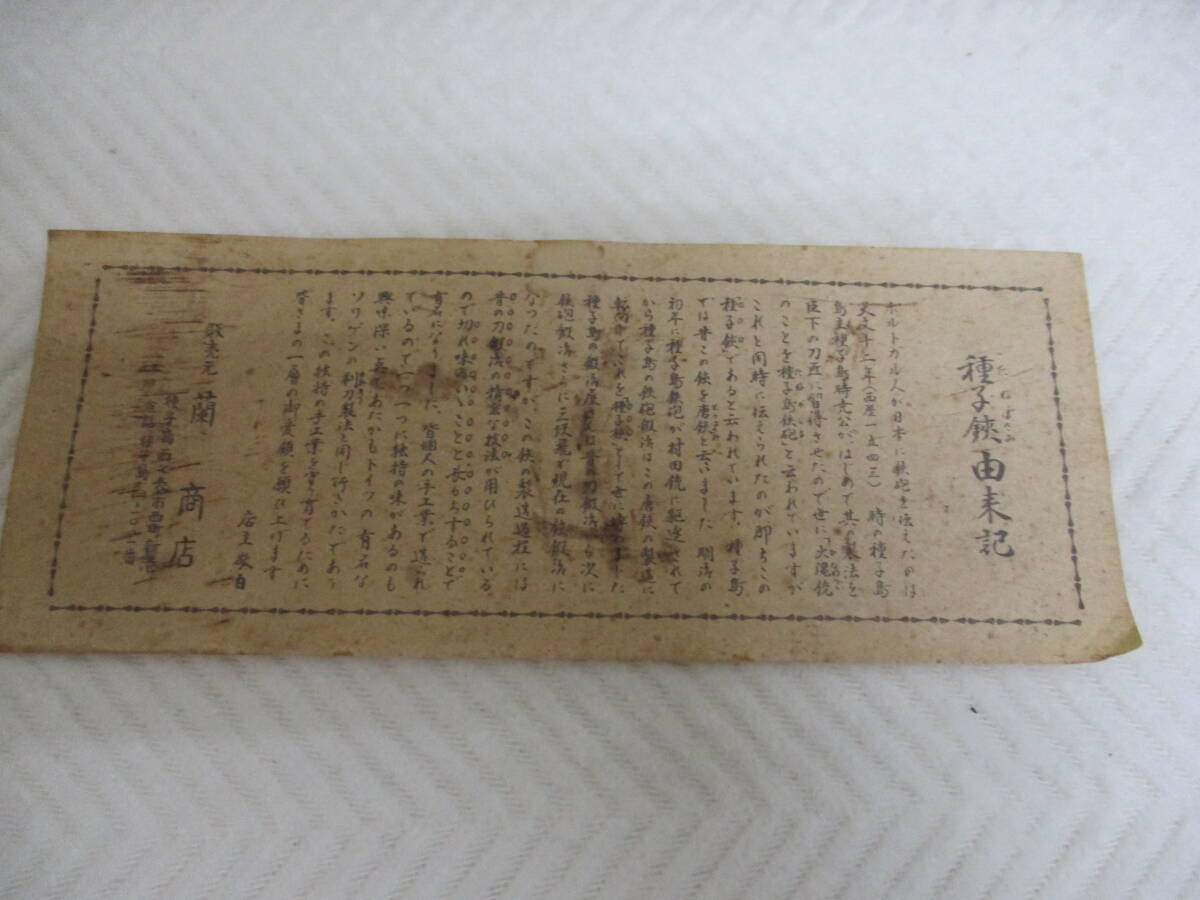 種子鋏由来記
たねばさみ
ポルトガル人が日本に鉄砲を伝えたのは
天文十二年(西歴一五四三)時の種子島
島主種子島時尭公がはじめて其の製法を
臣下の刀匠に習得させたので世に「火縄銃
のことを種子島鉄砲」と云われていますが
これと同時に伝えられたのが即ちこの
種子鋏」であると云われています。種子島
では昔この鋏を唐鋏と云いました 明治の
初年に種子島鉄砲が村田銃に駆逐されて
から種子島の鉄砲鍛冶はこの唐鋏の製造に
転向してこれを種子鋏として世に
種子島の鍛冶屋さんは 鍛冶から次に
鉄砲鍛冶さらに三段飛が現在の鋏鍛冶に
なったのですが、この鋏の製造過程には
昔の刀鍛冶の精密な技法が用ひられている
ので切れ味のいいことと長もちすることで
有名になりました、皆個人の手工業で造られ
ているので一つ一つに独特の味があるのも
興味深い
ソリゲンの利刀製法と同じ行きかたであり
ます。この独特の手工業を守り育てるために
皆さまの一層の御愛顧を願ひ上げます
店主敬白
販売元 蘭商店
種子島西之表市西町